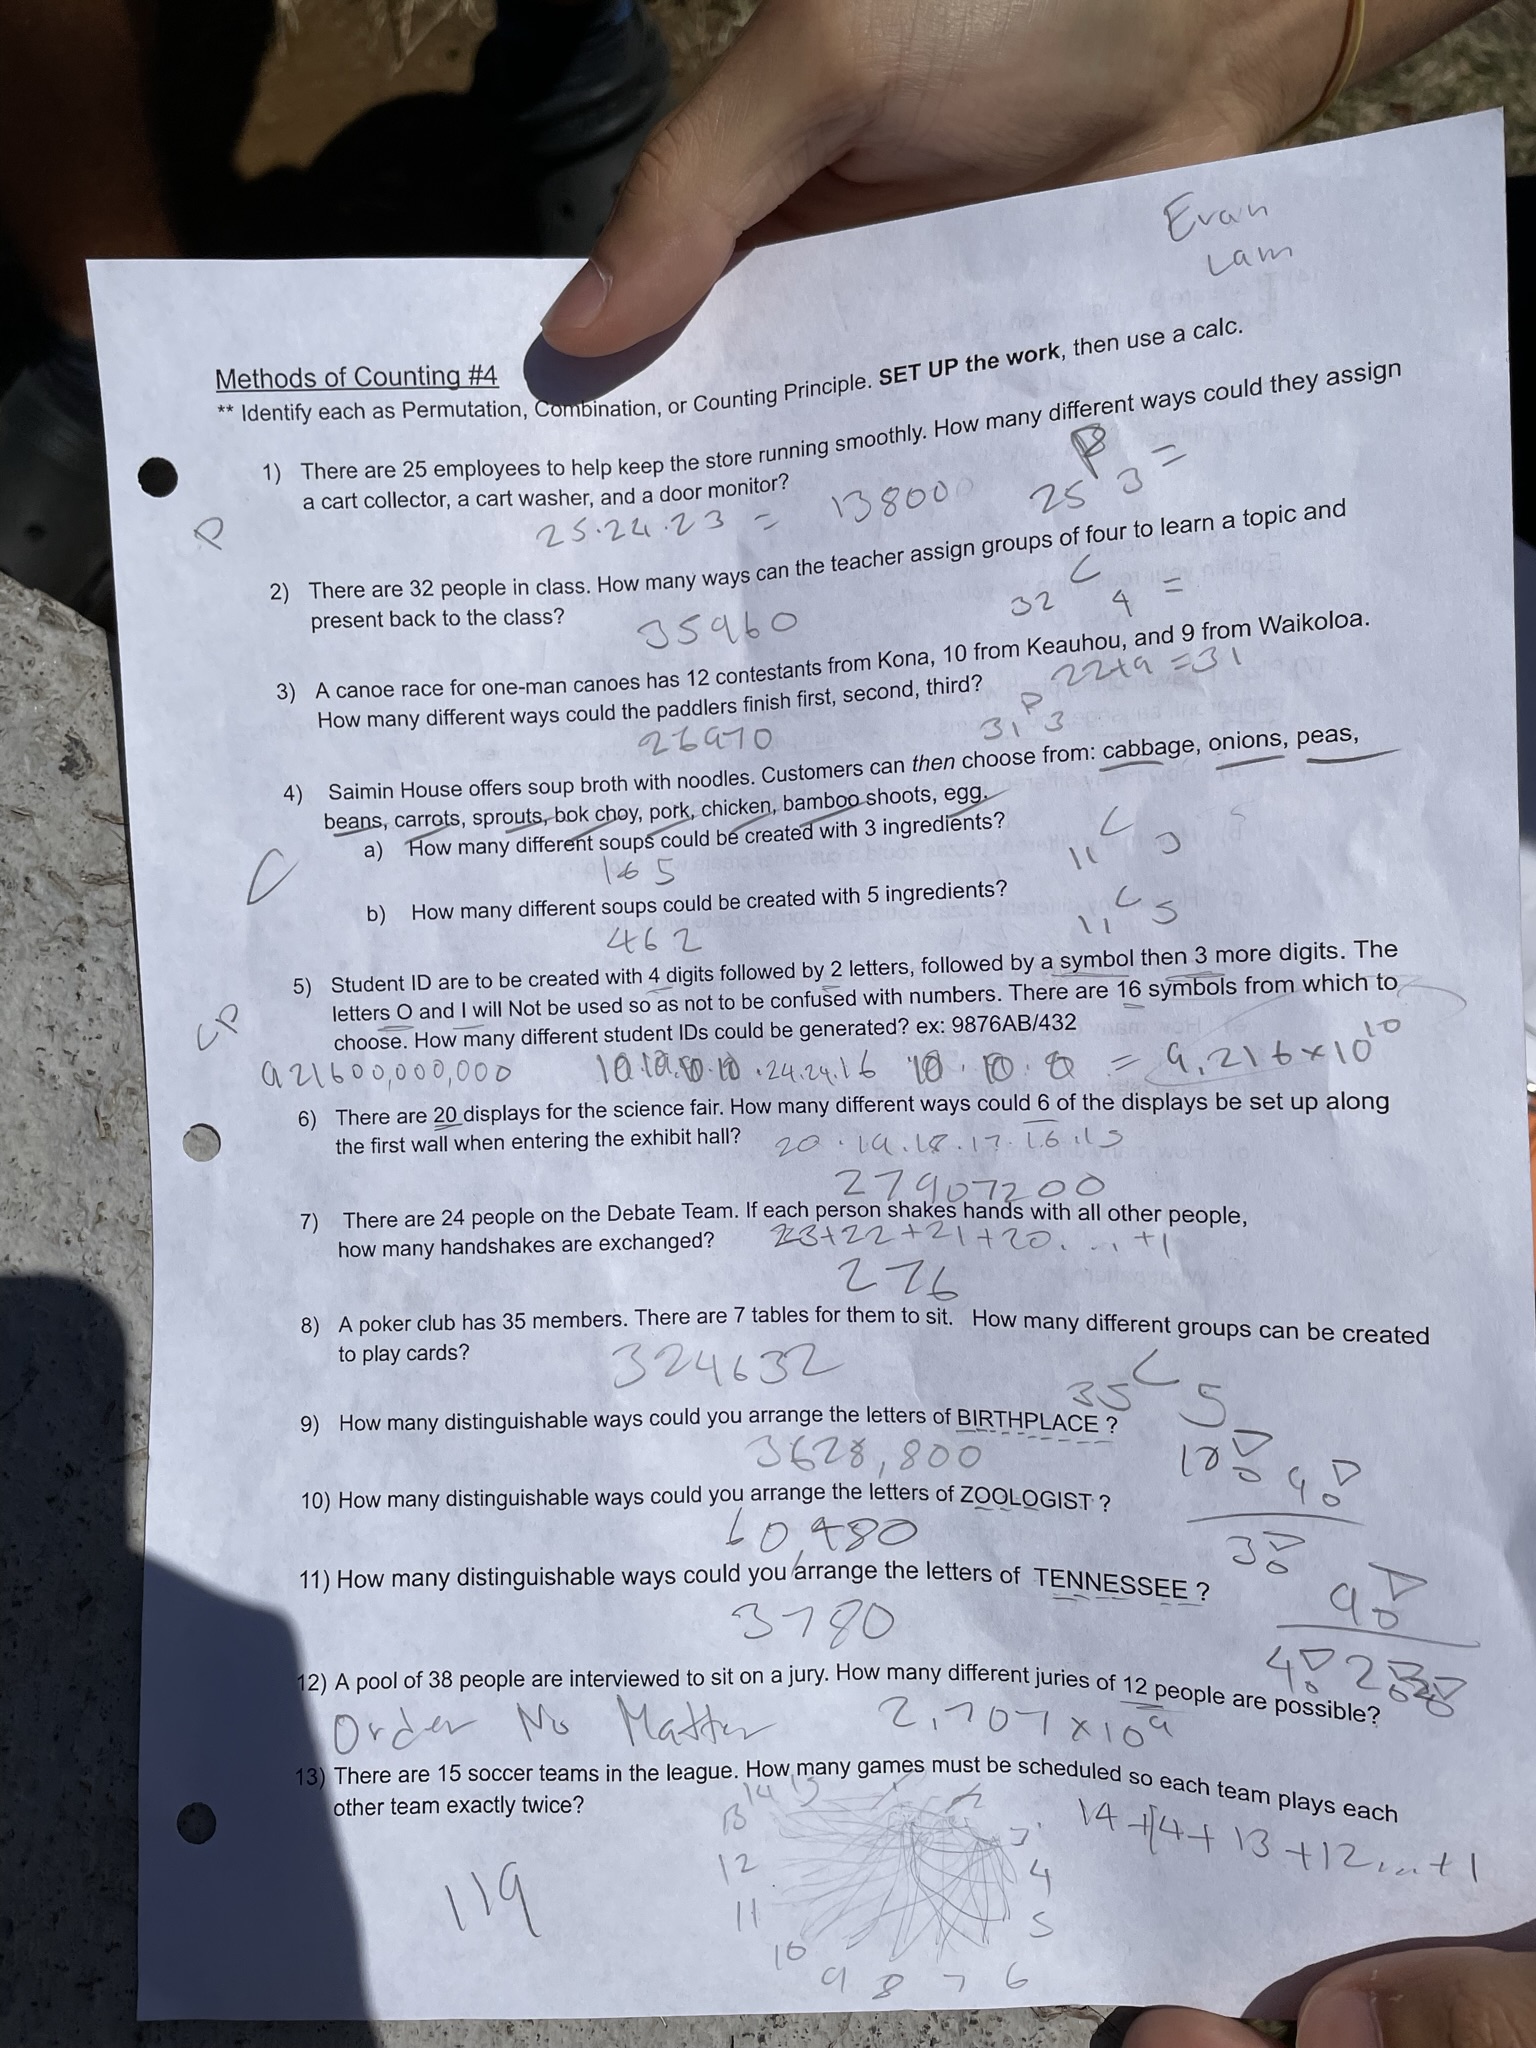 Evan
Lam
Methods of Counting #4
** Identify each as Permutation, Combination, or Counting Principle. SET UP the work, then use a calc.
1) There are 25 employees to help keep the store running smoothly. How many different ways could they assign
a cart collector, a cart washer, and a door monitor?
P
25·24·23 = 13800
25 P 3 =
2) There are 32 people in class. How many ways can the teacher assign groups of four to learn a topic and
present back to the class?
35960
32 C 4 =
3) A canoe race for one-man canoes has 12 contestants from Kona, 10 from Keauhou, and 9 from Waikoloa.
How many different ways could the paddlers finish first, second, third?
22+9 = 31
26970
31 P 3
4) Saimin House offers soup broth with noodles. Customers can then choose from: cabbage, onions, peas,
beans, carrots, sprouts, bok choy, pork, chicken, bamboo shoots, egg.
a) How many different soups could be created with 3 ingredients?
C
165
11 C 3
b) How many different soups could be created with 5 ingredients?
462
11 C 5
5) Student ID are to be created with 4 digits followed by 2 letters, followed by a symbol then 3 more digits. The
letters O and I will Not be used so as not to be confused with numbers. There are 16 symbols from which to
choose. How many different student IDs could be generated? ex: 9876AB/432
CP
921600,000,000
10·10·10·10·24·24·16 10·10·10 = 9.216×10^10
6) There are 20 displays for the science fair. How many different ways could 6 of the displays be set up along
the first wall when entering the exhibit hall?
20·19·18·17·16·15
27907200
7) There are 24 people on the Debate Team. If each person shakes hands with all other people,
how many handshakes are exchanged?
23+22+21+20....+1
276
8) A poker club has 35 members. There are 7 tables for them to sit. How many different groups can be created
to play cards?
324632
35 C 5
9) How many distinguishable ways could you arrange the letters of BIRTHPLACE ?
3628,800
10!
10) How many distinguishable ways could you arrange the letters of ZOOLOGIST ?
60,480
9!
3!
11) How many distinguishable ways could you arrange the letters of TENNESSEE ?
3780
9!
4! 2! 2!
12) A pool of 38 people are interviewed to sit on a jury. How many different juries of 12 people are possible?
Order No Matter
2.707×10^9
13) There are 15 soccer teams in the league. How many games must be scheduled so each team plays each
other team exactly twice?
14+14+13+12....+1
119
14 15 1 2
13 3
12 4
11 5
10 9 8 7 6